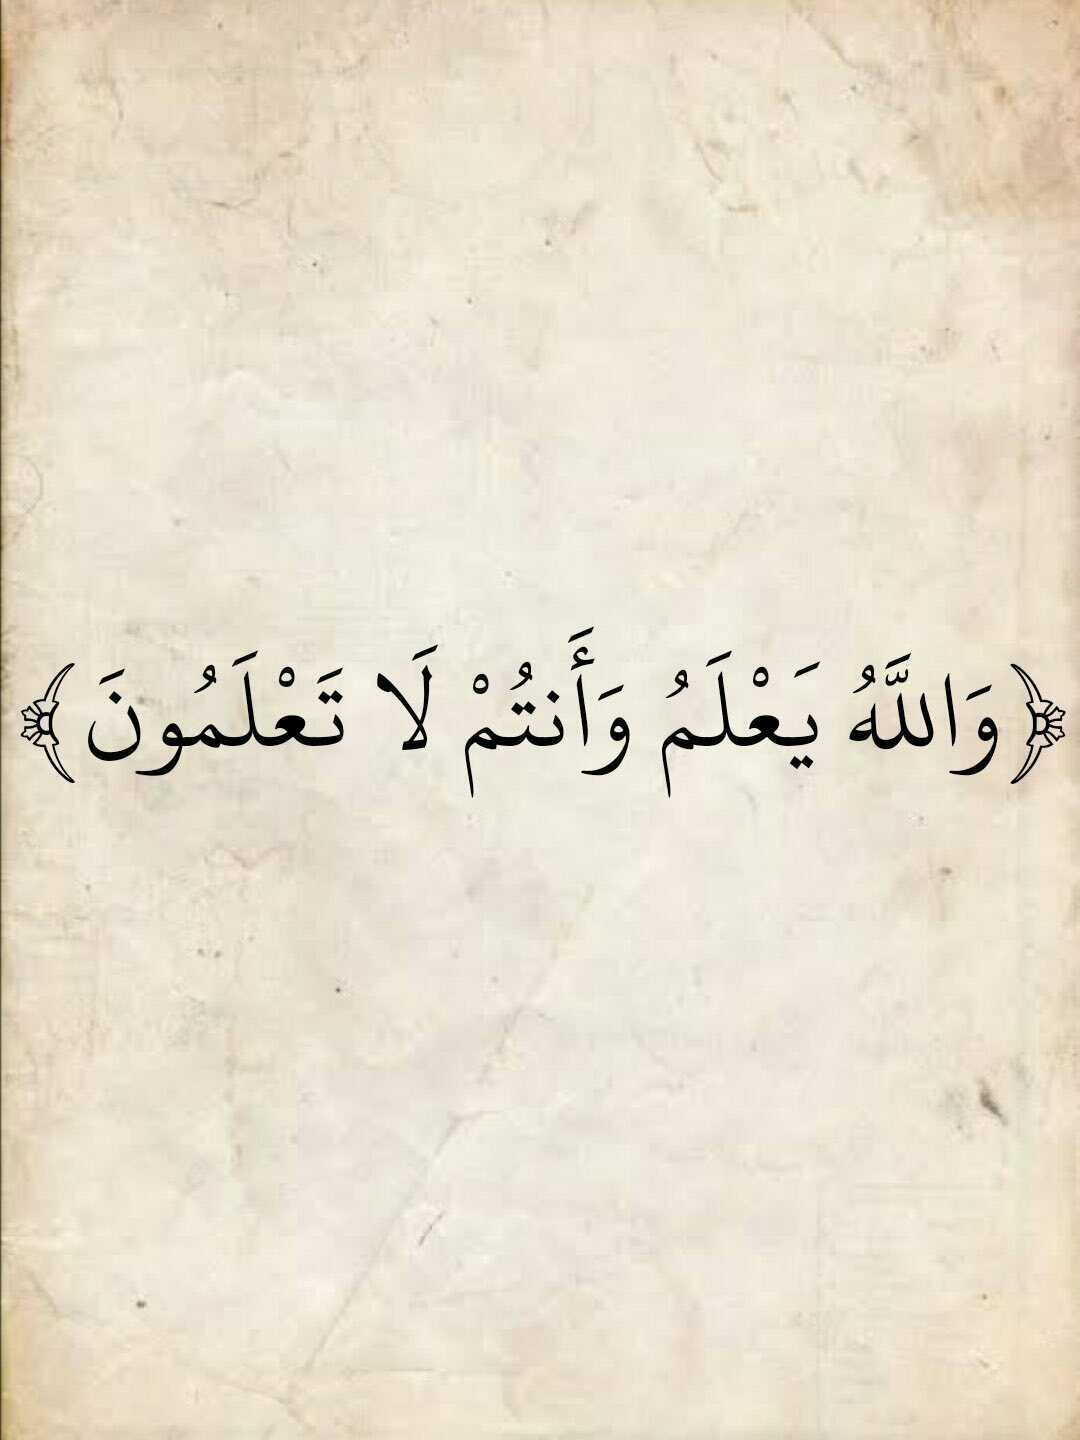 ﴿ وَاللَّهُ يَعْلَمُ وَأَنتُمْ لَا تَعْلَمُونَ ﴾